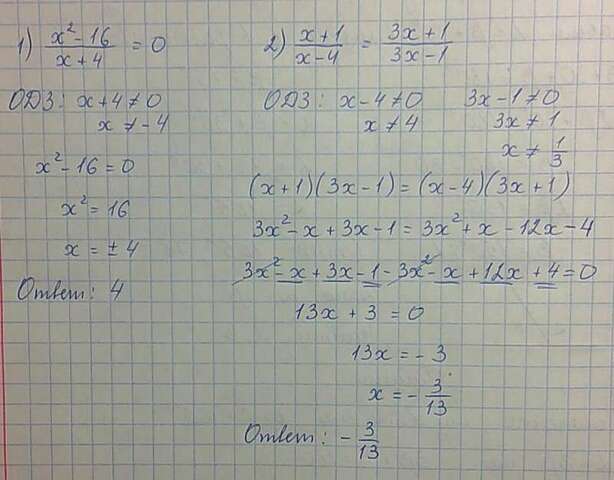 1) (x² - 16)/(x + 4) = 0
ОДЗ: x + 4 ≠ 0
x ≠ - 4
x² - 16 = 0
x² = 16
x = ± 4
Ответ: 4
2) (x + 1)/(x - 4) = (3x + 1)/(3x - 1)
ОДЗ: x - 4 ≠ 0 3x - 1 ≠ 0
x ≠ 4 3x ≠ 1
x ≠ 1/3
(x + 1)(3x - 1) = (x - 4)(3x + 1)
3x² - x + 3x - 1 = 3x² + x - 12x - 4
3x² - x + 3x - 1 - 3x² - x + 12x + 4 = 0
13x + 3 = 0
13x = - 3
x = - 3/13
Ответ: - 3/13